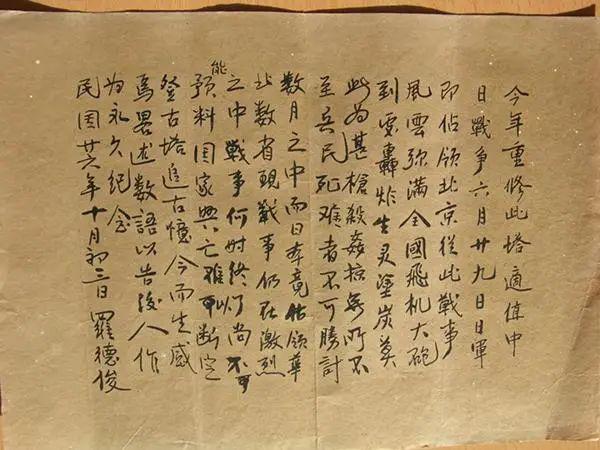 今年重修此塔適值中
日戰爭六月廿九日日軍
即佔領北京從此戰事
風雲弥滿全國飛机大砲
到處轟炸生灵塗炭莫
此為甚槍殺姦掠無所不
至兵民死难者不可勝計
数月之中而日本竟佔領華
北数省現戰事仍在激烈
之中戰事何时终尚不可
能預料国家興亡难以断定
登古塔追古憶今而生感
焉畧述数語以告後人作
为永久纪念
民国廿六年十月初三日羅德俊